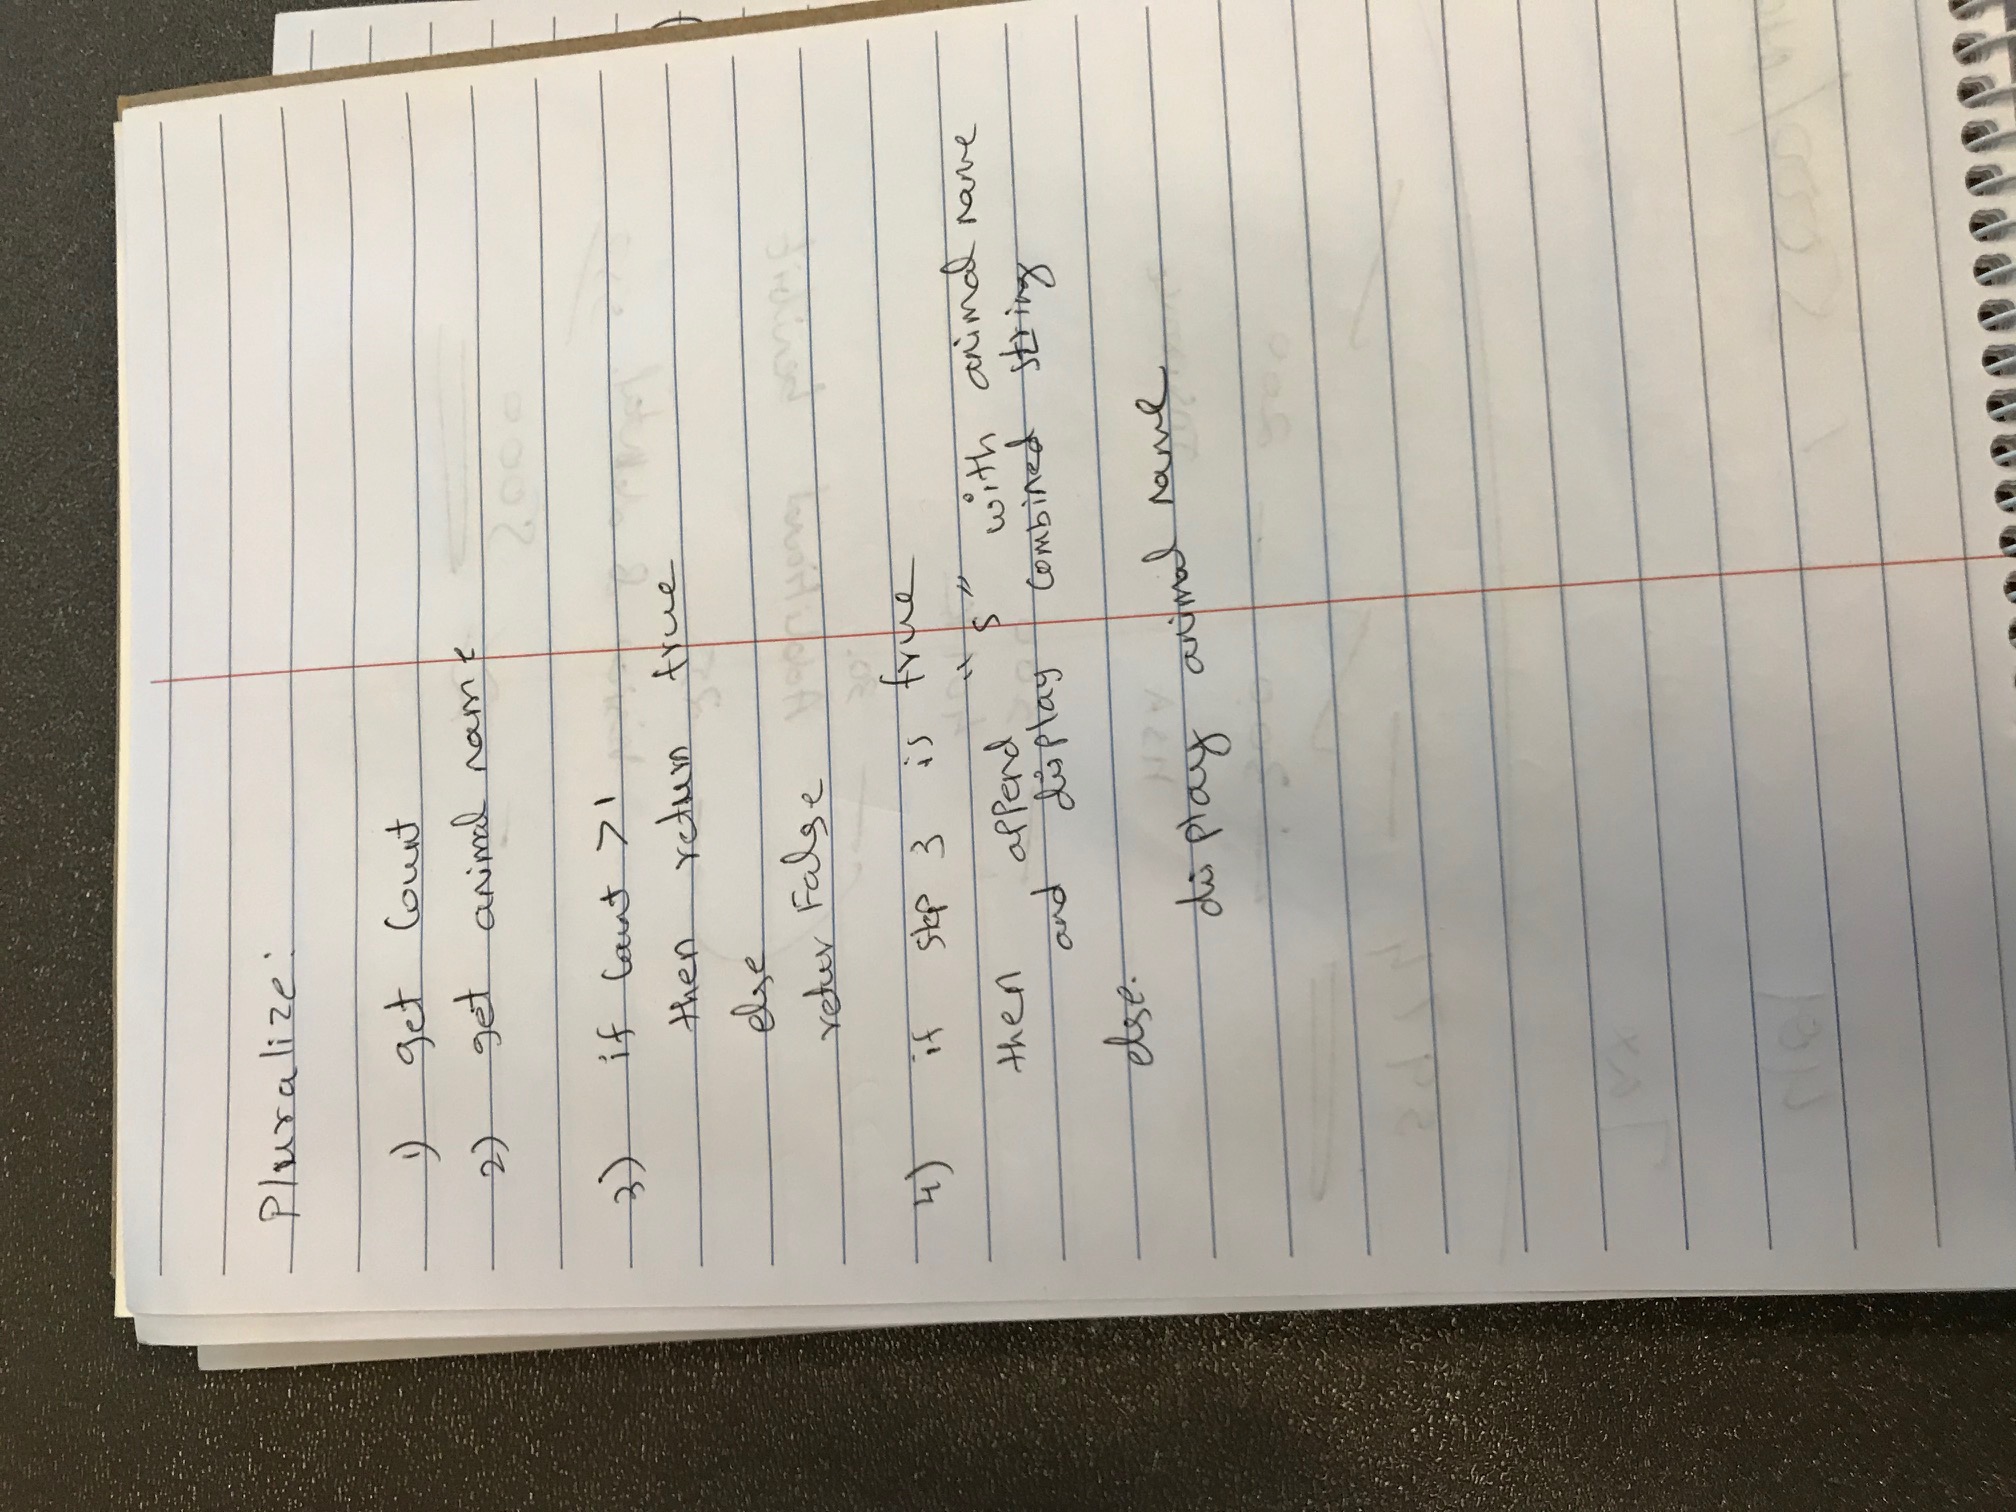 Pluralize:
1) get Count
2) get animal name
3) if Count >1
then return true
else
retur False
4) if step 3 is true
then append "s" with animal name
and display combined string
else.
display animal name